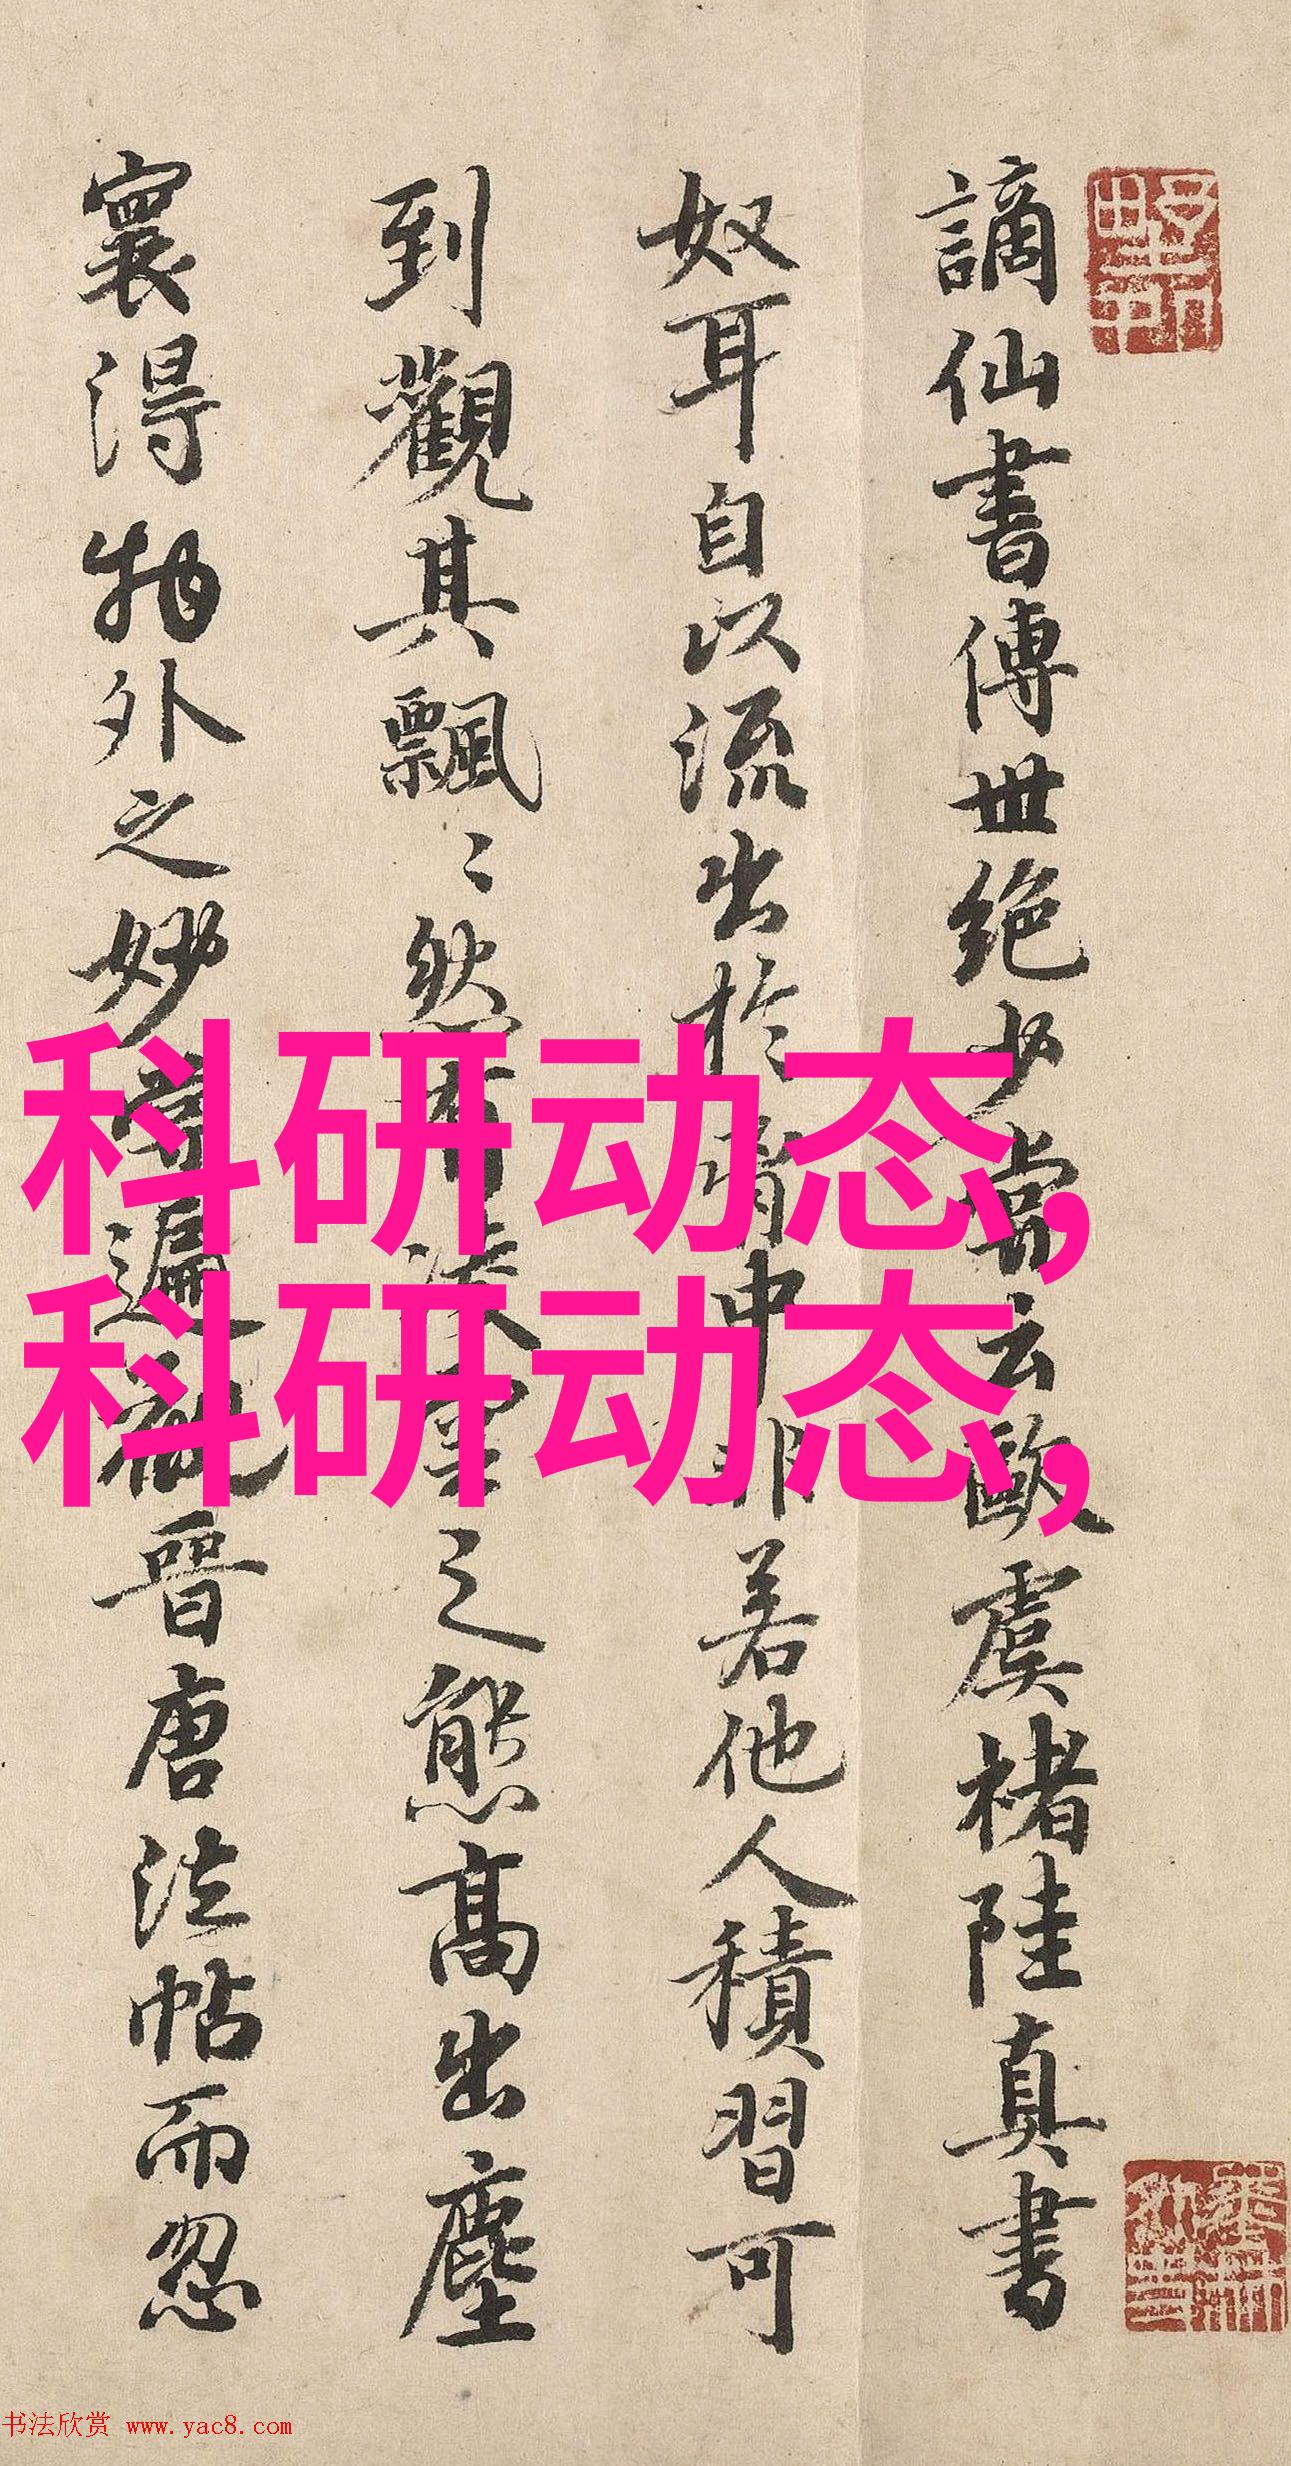 謫仙書傳世絕少嘗云歐虞褚陸真書
奴耳自以流出於胷中非若他人積習可
到觀其飄〻然有凌雲之態高出塵
寰得物外之妙嘗遍觀晉唐法帖而忽
科研动态,
科研动态,
书法欣赏 www.yac8.com